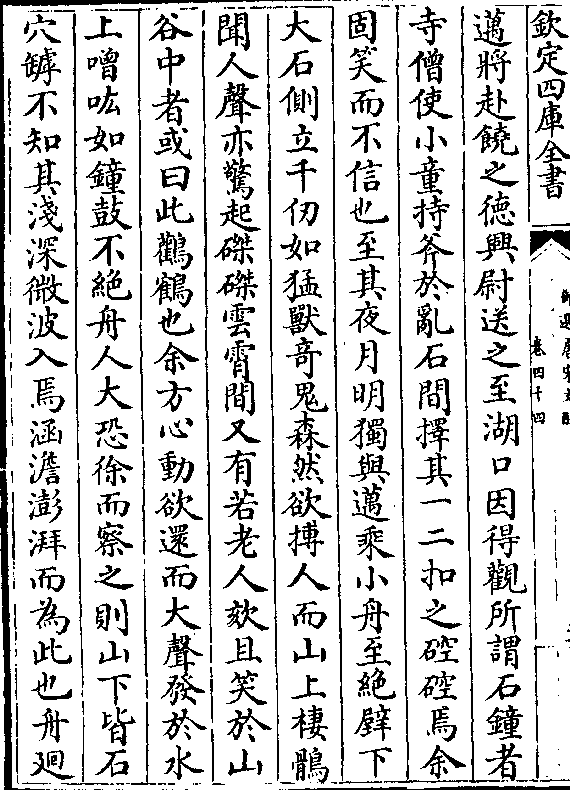 欽定四庫全書
御選唐宋文醇
卷四十四
邁將赴饒之德興尉送之至湖口因得觀所謂石鐘者
寺僧使小童持斧於亂石間擇其一二扣之硿硿焉余
固笑而不信也至其夜月明獨與邁乘小舟至絶壁下
大石側立千仞如猛獸奇鬼森然欲搏人而山上棲鶻
聞人聲亦驚起磔磔雲霄間又有若老人欬且笑於山
谷中者或曰此鸛鶴也余方心動欲還而大聲發於水
上噌吰如鐘鼓不絶舟人大恐徐而察之則山下皆石
穴罅不知其淺深微波入焉涵澹澎湃而為此也舟廻